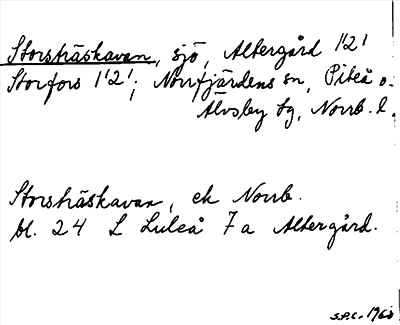 Storsträskavan, sjö, Altergård 1'2'
Storfors 1'2'; Norrfjärdens sn, Piteå o.
Älvsby tg, Norrb. l.
Storsträskavan, ek Norrb.
bl. 24 L Luleå 7a Altergård.
S.P.C. 1960